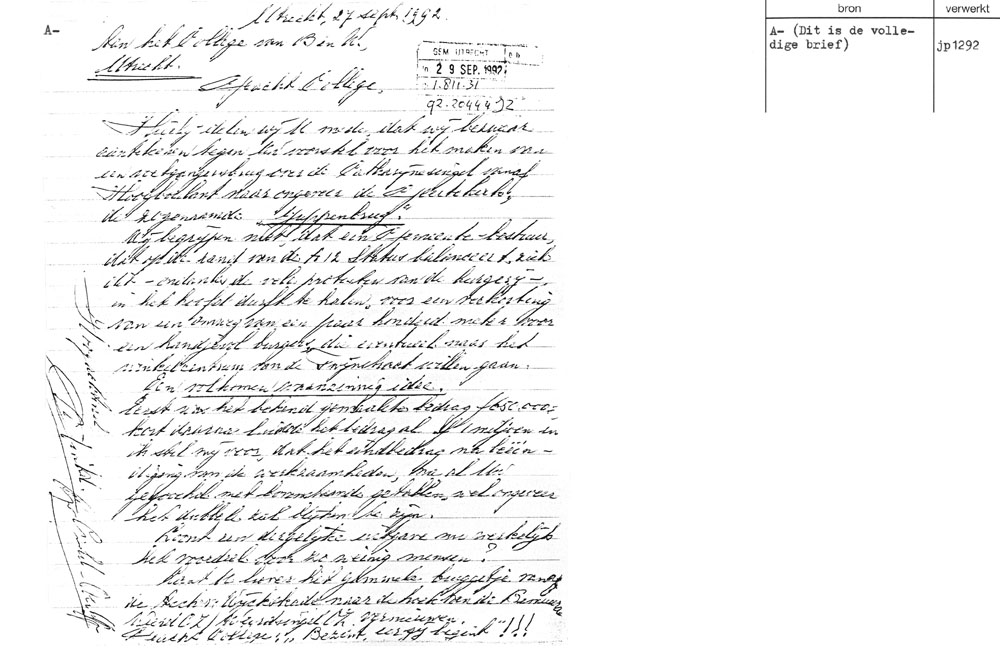 Utrecht, 27 sept. 1992.
A-
Aan het College van B en W.,
Utrecht.
GEM UTRECHT
29 SEP. 1992
1.811.31
92.20444
Geacht College,
Hierbij delen wij U mede, dat wij bezwaar
aantekenen tegen Uw voorstel voor het maken van
een voetgangersbrug over de Catharijnesingel vanaf
Hoogboulant naar ongeveer de Geertekerk,
de zogenaamde "Yuppenbrug".
Wij begrijpen niet, dat een Gemeente-bestuur,
dat op de rand van de Art 12 Status balanceert, zich
dit - ondanks de vele protesten van de burgerij -,
in het hoofd durft te halen, voor een verkorting
van een omweg van een paar honderd meter voor
een handjevol burgers, die eventueel naar het
winkelcentrum van de Twijnstraat willen gaan.
Een volkomen waanzinnig idee.
Eerst was het bekend gemaakte bedrag f 650.000,-
kort daarna luidde het bedrag al f 1 miljoen en
ik stel mij voor, dat het eindbedrag na beëin-
diging van de werkzaamheden, na al Uw
gegoochel met bovenstaande getallen, wel ongeveer
het dubbele zal blijken te zijn.
Komt een dergelijke uitgave nu werkelijk
het voordeel voor zo weinig mensen?
Laat U liever het gammele bruggetje vanaf
de v. Wijckskade naar de hoek van de Bemuurde
Weerd O.Z./ Weerdsingel O.Z. vernieuwen.
Geacht College: "Bezint, eer gij begint"!!!
Hoogachtend
bron
verwerkt
A- (Dit is de volle-
dige brief)
jp1292